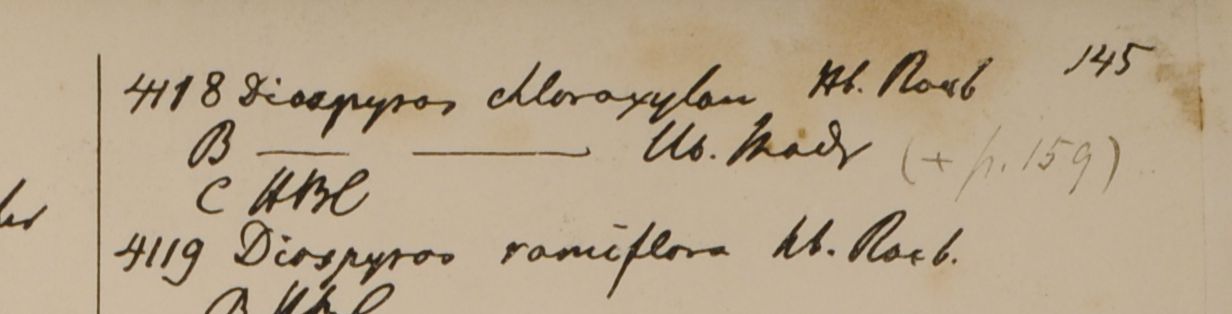 145
4118 Diospyros chloroxylon Hb. Roxb
B — — Hb. Madr (+ p. 159)
C HBC
4119 Diospyros ramiflora hb. Roxb.
B HBC